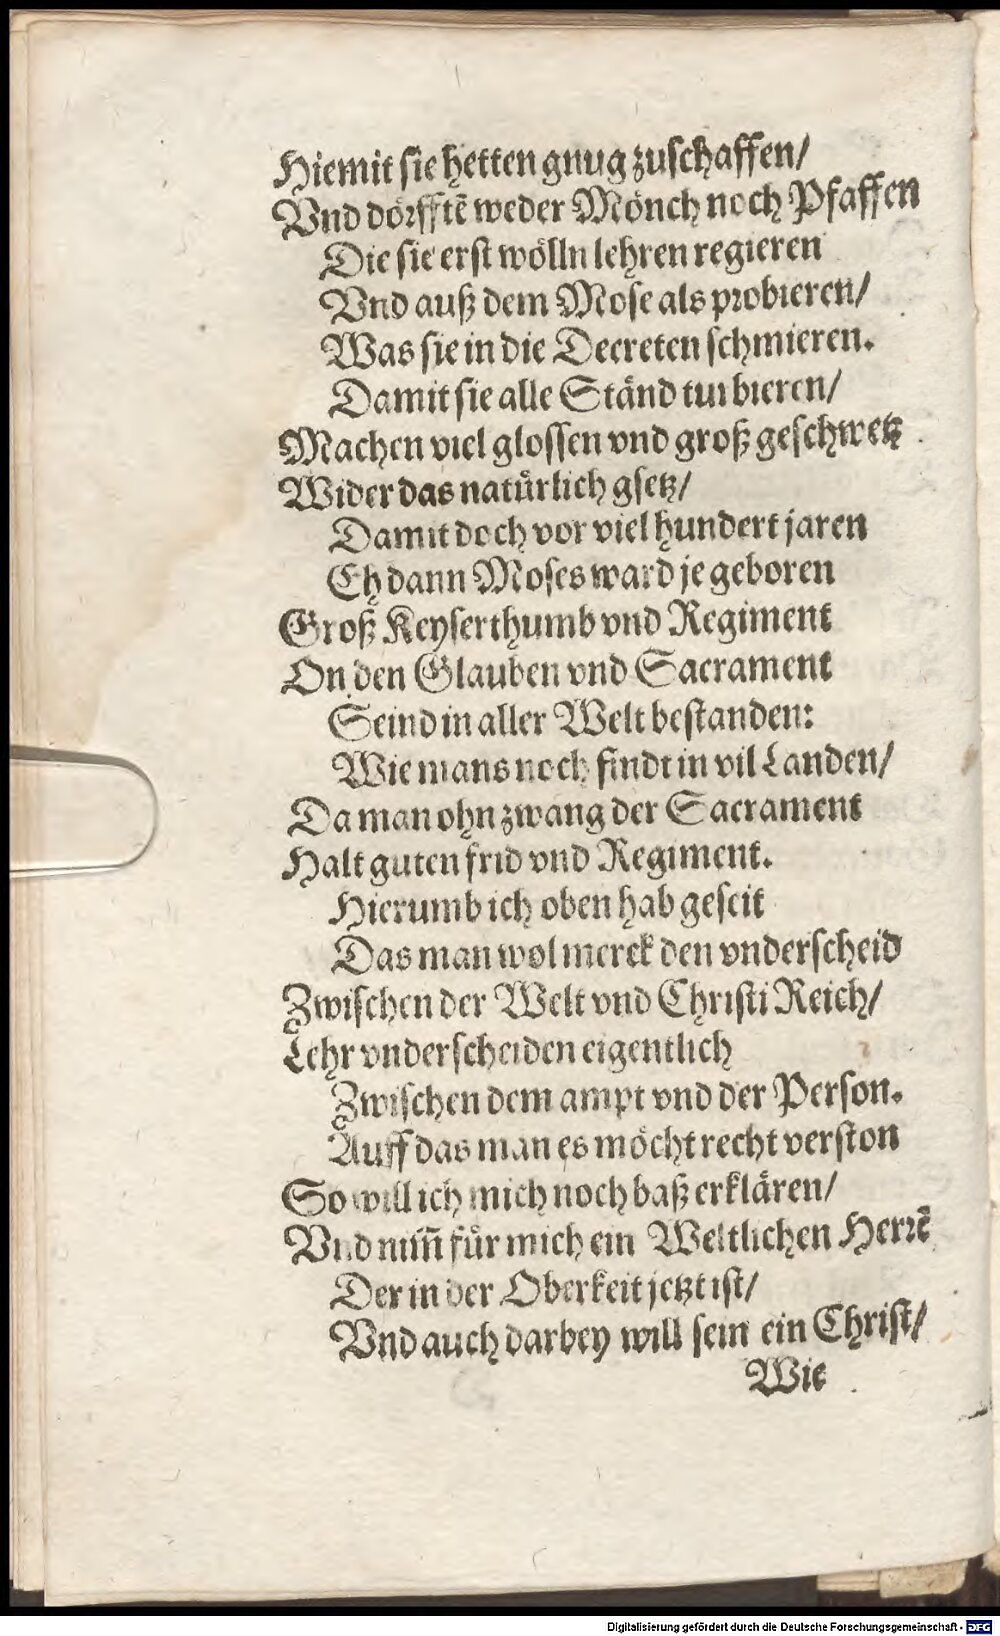 Hiemit sie hetten gnug zuschaffen/
Vnd dörfftē weder Mönch noch Pfaffen
Die sie erst wölln lehren regieren
Vnd auß dem Mose als probieren/
Was sie in die Decreten schmieren.
Damit sie alle Ständ turbieren/
Machen viel glossen vnd groß geschwetz
Wider das natürlich gsetz/
Damit doch vor viel hundert jaren
Eh dann Moses ward je geboren
Groß Keyserthumb vnd Regiment
On den Glauben vnd Sacrament
Seind in aller Welt bestanden:
Wie mans noch findt in vil Landen/
Da man ohn zwang der Sacrament
Halt guten frid vnd Regiment.
Hierumb ich oben hab geseit
Das man wol merck den vnderscheid
Zwischen der Welt vnd Christi Reich/
Lehr vnderscheiden eigentlich
Zwischen dem ampt vnd der Person.
Auff das man es möcht recht verston
So will ich mich noch baß erklären/
Vnd nim̄ für mich ein Weltlichen Herrē
Der in der Oberkeit jetzt ist/
Vnd auch darbey will sein ein Christ/
Wie
Digitalisierung gefördert durch die Deutsche Forschungsgemeinschaft - DFG